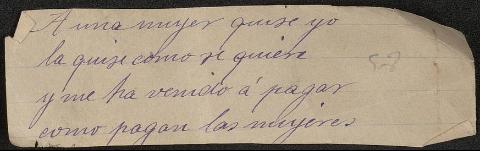 A una mujer quise yo
la quise como se quiere
y me ha venido á pagar
como pagan las mujeres